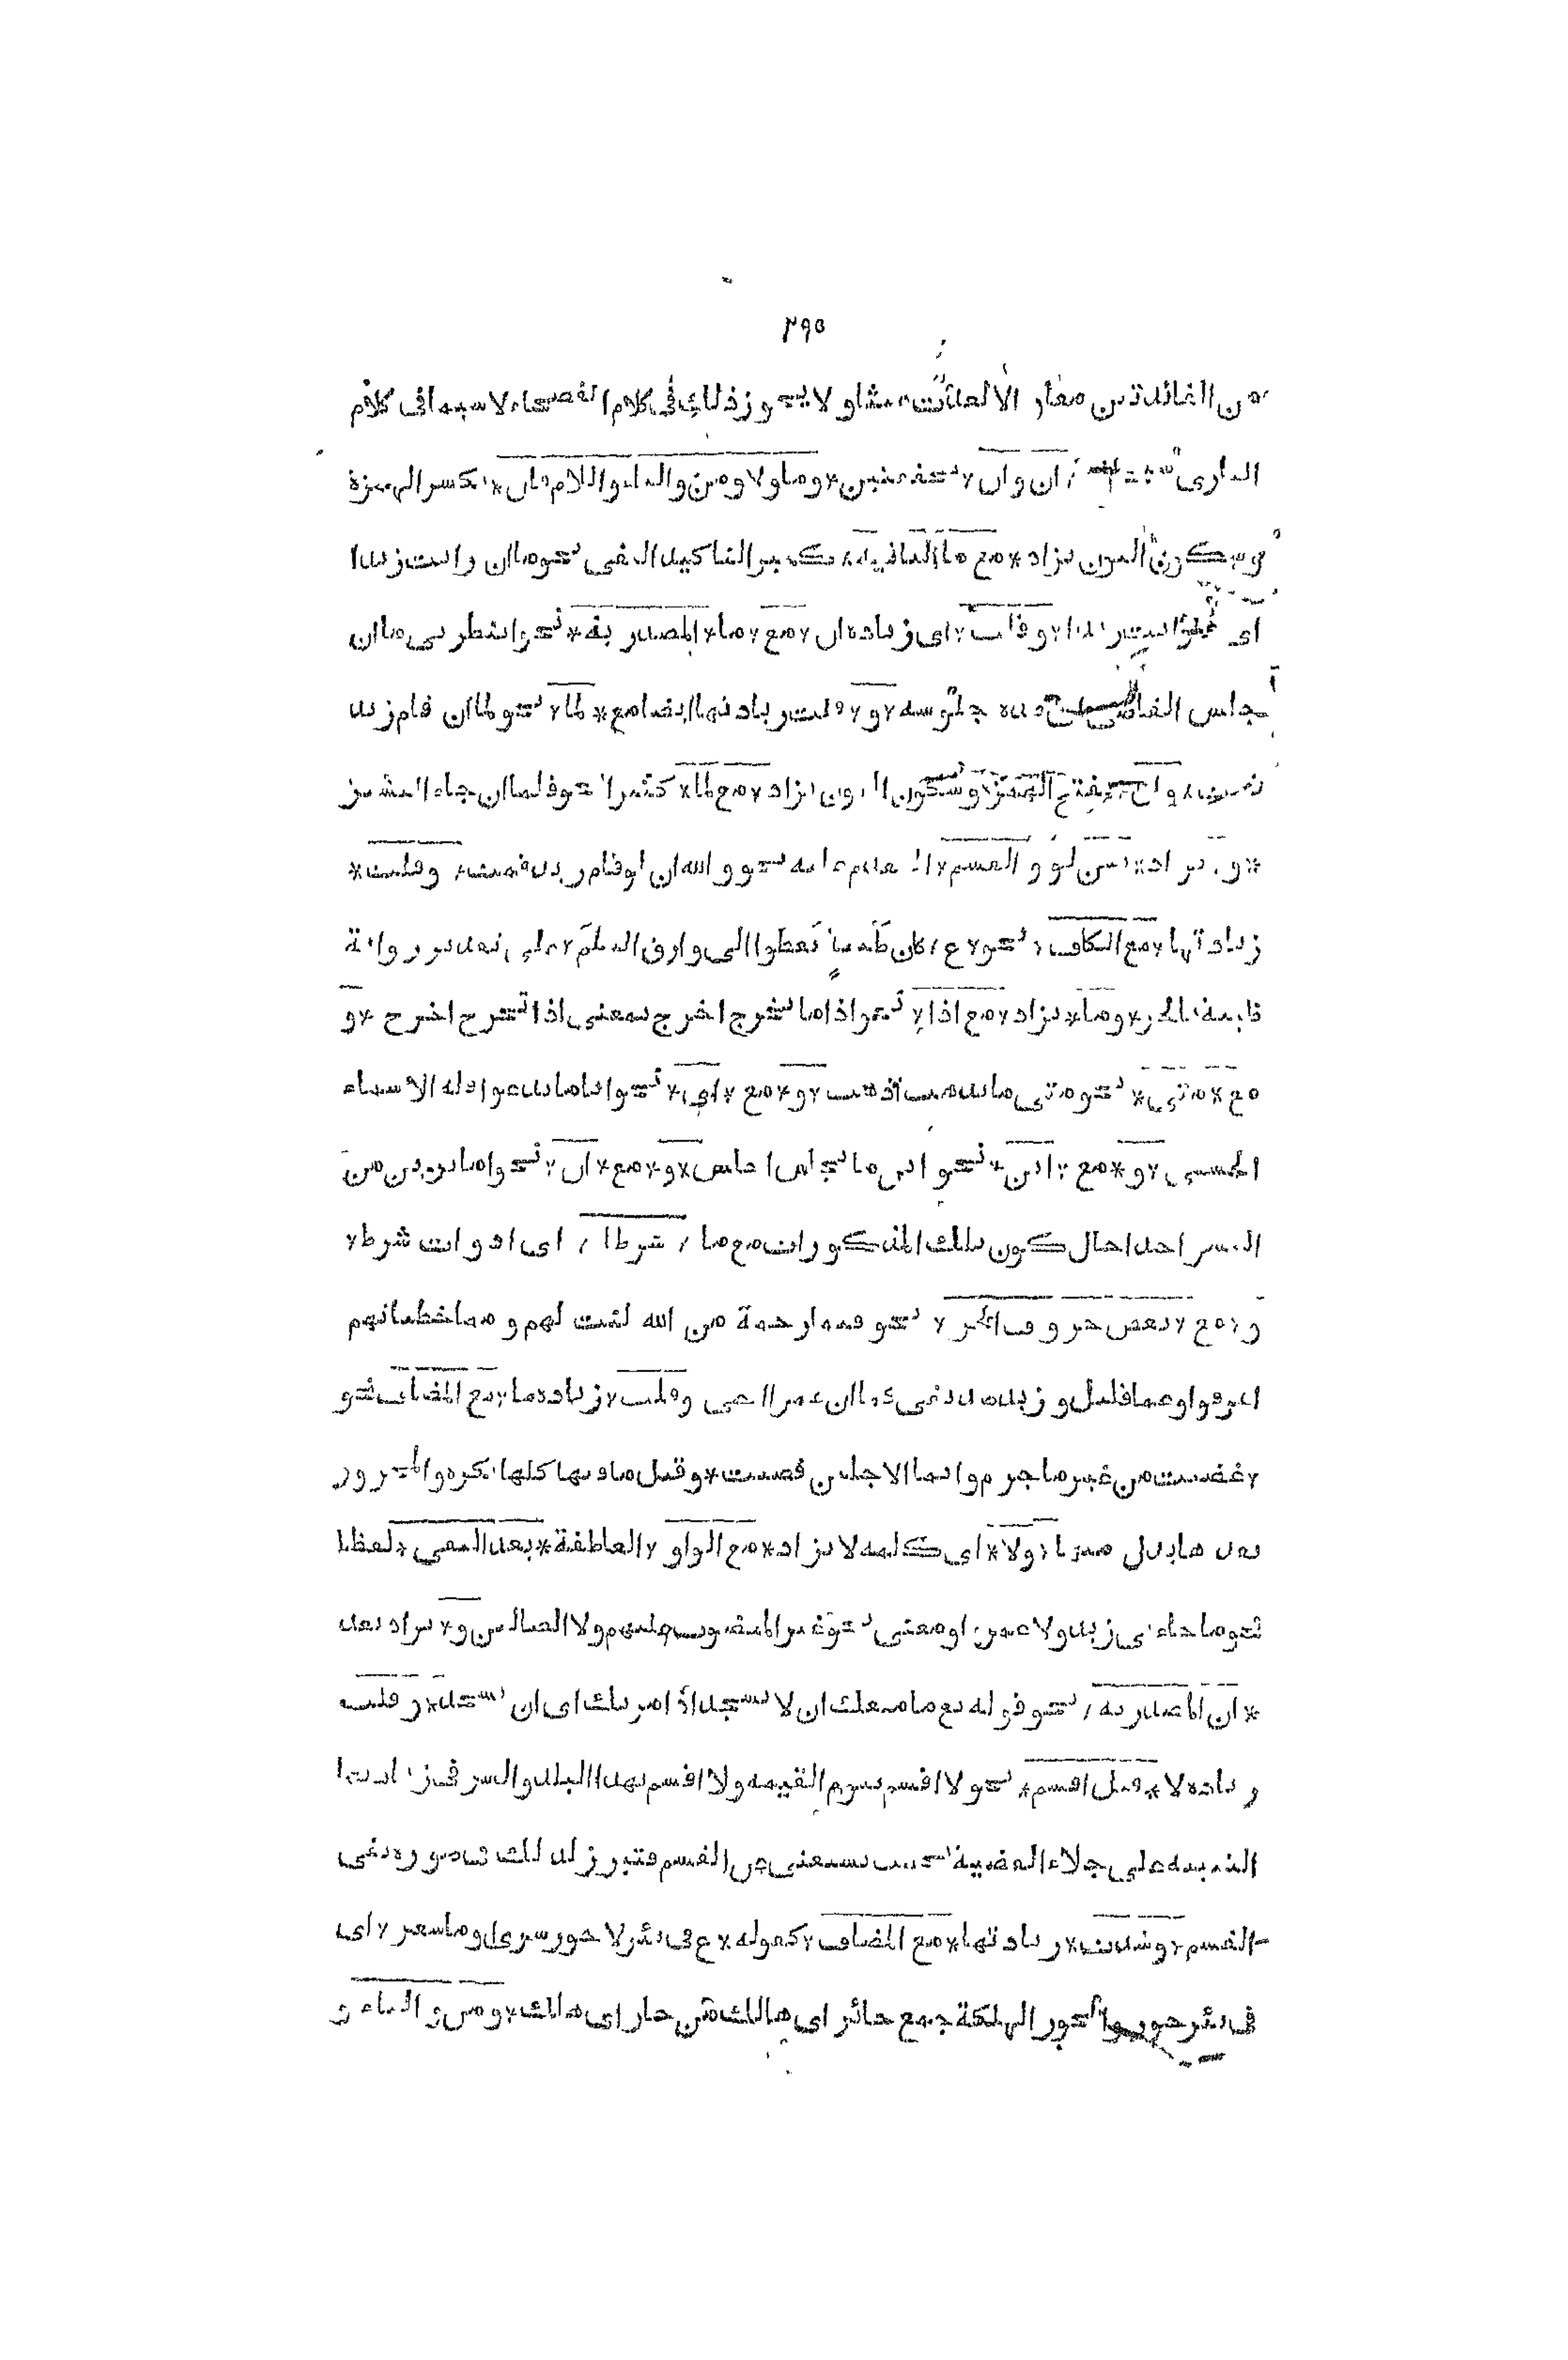 ٢٩٥
من الفائدتين معا والا لعدت عبثا ولا يجوز ذلك فى كلام الفصحاء لاسيما فى كلام
البارى ان وان * مخففتين * وما ولا ومن والباء واللام فان * بكسر الهمزة
وسكون النون تزاد * مع ما النافية * كثيرا لتاكيد النفى نحو ما ان رايت زيدا
اى ما رايت زيدا * وقلت * اى زيادة ان * مع * ما * المصدرية * نحو انتظرنى ما ان
جلس القاضى اى مدة جلوسه * و * قلت زيادتها ايضا مع * لما * نحو لما ان قام زيد
قمت * وان * بفتح الهمزة وسكون النون تزاد * مع لما * كثيرا نحو فلما ان جاء البشير
* و * تزاد * بين لو والقسم * المتقدم عليه نحو والله ان لو قام زيد قمت * وقلت *
زيادتها * مع الكاف * نحو * ع * كان ظبية تعطوا الى وارق السلم * على تقدير رواية
ظبية بالجر * وما * تزاد * مع اذا * نحو اذا ما تخرج اخرج بمعنى اذا تخرج اخرج * و
مع * متى * نحو متى ما تذهب اذهب * و * مع * اى * نحو اياما تدعوا فله الاسماء
الحسنى * و * مع * اين * نحو اين ما تجلس اجلس * و * مع * ان * نحو اما ترين من
البشر احدا حال كون تلك المذكورات مع ما * شرطا * اى ادوات شرط *
و * مع * بعض حروف الجر * نحو فبما رحمة من الله لنت لهم ومما خطيئاتهم
اغرقوا وعما قليل وزيد صديقى كما ان عمرا اخى وقلت * زيادة ما * مع المضاف نحو
* غضبت من غير ما جرم وايما الاجلين قضيت * وقيل ما فيها كلها نكرة والمجرور
بعدها بدل منها * ولا * اى كلمة لا تزاد * مع الواو * العاطفة * بعد النفى * لفظا
نحو ما جاءنى زيد ولا عمرو او معنى نحو غير المغضوب عليهم ولا الضالين و * تزاد بعد
* ان المصدرية * نحو قوله تع ما منعك ان لا تسجد اذ امرتك اى ان تسجد * وقلت
زيادة لا * قبل اقسم * نحو لا اقسم بيوم القيمة ولا اقسم بهذا البلد والسر فى زيادتها
التنبيه على جلاء القضية بحيث تستغنى عن القسم فتبرز لذلك فى صورة نفى
القسم * وشذت * زيادتها * مع المضاف * كقوله * ع فى بئر لا حور سرى وما شعر * اى
فى بئر حور والحور الهلكة جمع حائر اى هالك من حار اى هلك * ومن والباء و